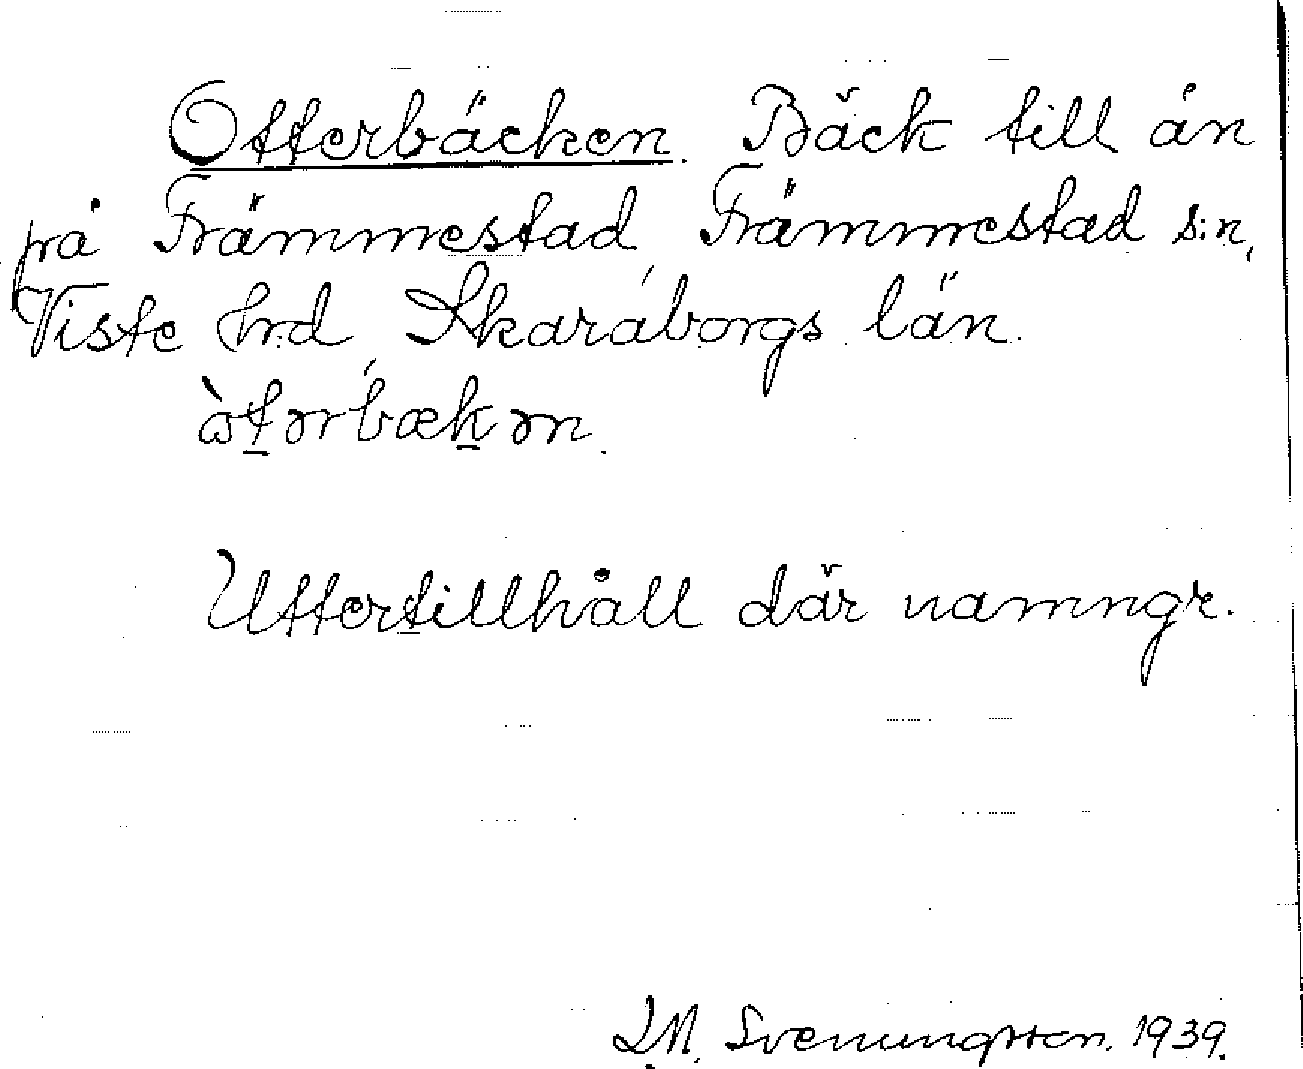 Otterbäcken. Bäck till ån
på Främmestad, Främmestad s:n,
Viste hrd, Skaraborgs län.
ὼt̲ərbækən.
Uttertillhåll där namngr.
L.M. Svenungsson. 1939.